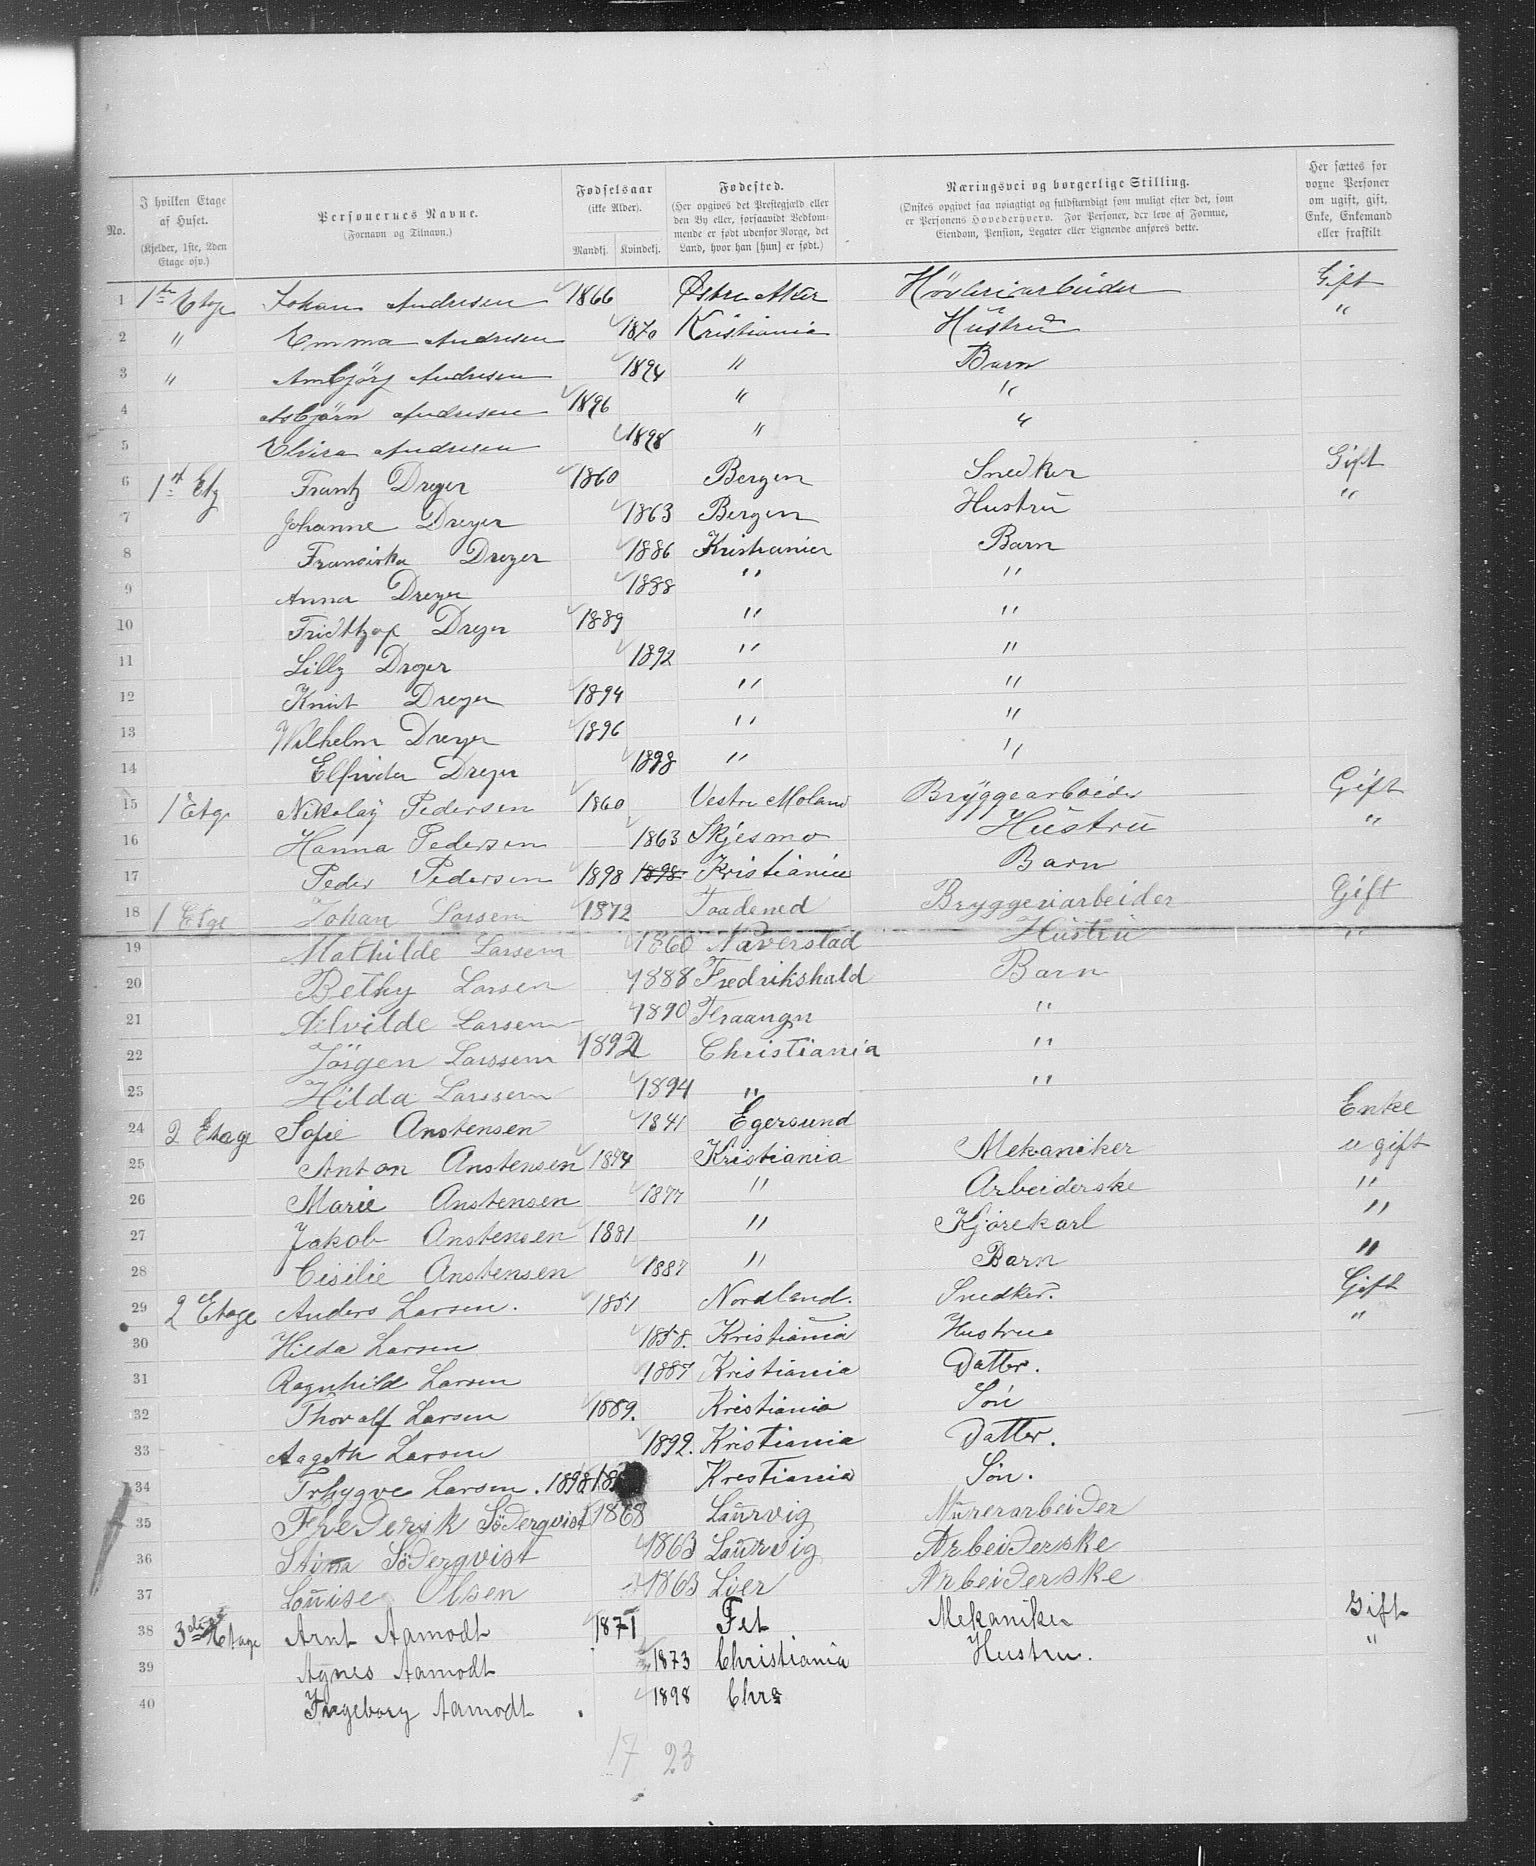 No. | I hvilken Etage af Huset. (Kjelder, 1ste, 2den Etage osv.) | Personernes Navne. (Fornavn og Tilnavn.) | Fødselsaar (ikke Alder). Mandkj. | Kvindekj. | Fødested. (Her opgives det Prestegjæld eller den By eller, forsaavidt Vedkommende er født udenfor Norge, det Land, hvor han [hun] er født.) | Næringsvei og borgerlige Stilling. (Ønskes opgivet saa nøiagtigt og fuldstændigt som muligt efter det, som er Personens Hovederhverv. For Personer, der leve af Formue, Eiendom, Pension, Legater eller Lignende anføres dette. | Her sættes for voxne Personer om ugift, gift, Enke, Enkemand eller fraskilt
1 1ste Etage Johan Andresen 1866 Østre Aker Høvleriarbeider Gift
2 " Emma Andresen 1870 Kristiania Hustru "
3 " Ambjörg Andresen 1894 " Barn
4 Asbjörn Andresen 1896 " "
5 Elvira Andresen 1898 " "
6 1st Etg Frantz Dreyer 1860 Bergen Snedker Gift
7 Johanne Dreyer 1863 Bergen Hustru "
8 Fransiska Dreyer 1886 Kristiania Barn
9 Anna Dreyer 1888 " "
10 Fridthjof Dreyer 1889 " "
11 Lilly Dreyer 1892 " "
12 Knut Dreyer 1894 " "
13 Wilhelm Dreyer 1896 " "
14 Elfrida Dreyer 1898 " "
15 1 Etg Nikolay Pedersen 1860 Vestre Moland Bryggearbeider Gift
16 Hanna Pedersen 1863 Skjesmo Hustru "
17 Peder Pedersen 1898 1898 Kristiania Barn
18 1 Etge Johan Larsen 1872 Bryggeriarbeider Gift
19 Mathilde Larsen 1860 Naverstad Hustru "
20 Bethy Larsen 1888 Fredrikshald Barn
21 Alvilde Larsen 1890 "
22 Jörgen Larssen 1892 Christiania "
23 Hilda Larssen 1894 " "
24 2 Etage Sofie Anstensen 1841 Egersund Enke
25 Anton Anstensen 1874 Kristiania Mekaniker ugift
26 Marie Anstensen 1877 " Arbeiderske "
27 Jakob Anstensen 1881 " Kjörekarl "
28 Cisilie Anstensen 1887 " Barn "
29 2 Etage Anders Larsen. 1851 Nordland. Snedker. Gift
30 Hilda Larsen 1858. Kristiania Hustrue "
31 Ragnhild Larsen 1887 Kristiania Datter.
32 Thoralf Larsen 1889. Kristiania Sön
33 Aagoth Larsen 1892. Kristiania Datter.
34 Trhygve Larsen. 1898 Krestiania Sön.
35 Frederik Söderqvist 1868 Laurvig Murerarbeider
36 Stina Söderqvist 1863 Laurvig Arbeiderske
37 Louise Olsen 1863 Lier Arbeiderske
38 3die Etage Arnt Aamodt 1871 Fet Mekaniker Gift
39 Agnes Aamodt 1873 Christiania Hustru. "
40 Ingeborg Aamodt 1898 Chra
17 23